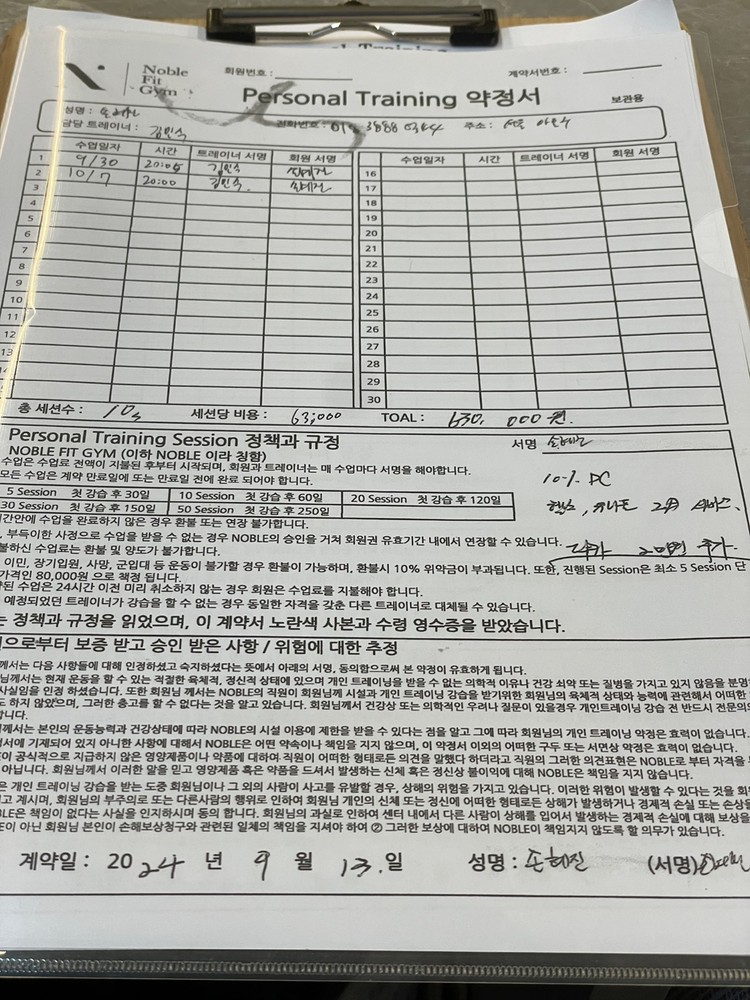 Noble
Fit
Gym
회원번호 :
계약서번호 :
Personal Training 약정서
보관용
성명 : 손혜진
담당 트레이너 : 김민수
전화번호 : 010 3888 0344
주소 : 서울
수업일자 시간 트레이너 서명 회원 서명
수업일자 시간 트레이너 서명 회원 서명
1 9/30 20:00
2 10/7 20:00
3
4
5
6
7
8
9
10
11
12
13
16
17
18
19
20
21
22
23
24
25
26
27
28
29
30
총 세션수 : 10
세션당 비용 : 63,000
TOAL : 630, 000 원.
Personal Training Session 정책과 규정
서명
NOBLE FIT GYM (이하 NOBLE 이라 칭함)
수업은 수업료 전액이 지불된 후부터 시작되며, 회원과 트레이너는 매 수업마다 서명을 해야합니다.
모든 수업은 계약 만료일에 또는 만료일 전에 완료 되어야 합니다.
10% DC
5 Session 첫 강습 후 30일
10 Session 첫 강습 후 60일
20 Session 첫 강습 후 120일
30 Session 첫 강습 후 150일
50 Session 첫 강습 후 250일
시간안에 수업을 완료하지 않은 경우 환불 또는 연장 불가합니다.
부득이한 사정으로 수업을 받을 수 없는 경우 NOBLE의 승인을 거쳐 회원권 유효기간 내에서 연장할 수 있습니다.
불하신 수업료는 환불 및 양도가 불가합니다.
이민, 장기입원, 사망, 군입대 등 운동이 불가할 경우 환불이 가능하며, 환불시 10% 위약금이 부과됩니다. 또한, 진행된 Session은 최소 5 Session 단
가격인 80,000원 으로 책정 됩니다.
된 수업은 24시간 이전 미리 취소하지 않는 경우 회원은 수업료를 지불해야 합니다.
예정되었던 트레이너가 강습을 할 수 없는 경우 동일한 자격을 갖춘 다른 트레이너로 대체될 수 있습니다.
는 정책과 규정을 읽었으며, 이 계약서 노란색 사본과 수령 영수증을 받았습니다.
으로부터 보증 받고 승인 받은 사항 / 위험에 대한 추정
께서는 다음 사항들에 대해 인정하셨고 숙지하셨다는 뜻에서 아래의 서명, 동의함으로써 본 약정이 유효하게 됩니다.
님께서는 현재 운동을 할 수 있는 적절한 육체적, 정신적 상태에 있으며 개인 트레이닝을 받을 수 없는 의학적 이유나 건강 쇠약 또는 질병을 가지고 있지 않음을 분명
사실임을 인정 하셨습니다. 또한 회원님 께서는 NOBLE의 직원이 회원님께 시설과 개인 트레이닝 강습을 받기위한 회원님의 육체적 상태와 능력에 관련해서 어떠한
도 하지 않았으며, 그러한 충고를 할 수 없다는 것을 알고 있습니다. 회원님께서 건강상 또는 의학적인 우려나 질문이 있을경우 개인트레이닝 강습 전 반드시 전문의
니다.
께서는 본인의 운동능력과 건강상태에 따라 NOBLE의 시설 이용에 제한을 받을 수 있다는 점을 알고 그에 따라 회원님의 개인 트레이닝 약정은 효력이 없습니다.
서에 기재되어 있지 아니한 사항에 대해서 NOBLE은 어떤 약속이나 책임을 지지 않으며, 이 약정서 이외의 어떠한 구두 또는 서면상 약정은 효력이 없습니다.
이 공식적으로 지급하지 않은 영양제품이나 약품에 대하여 직원이 어떠한 형태로든 의견을 말했다 하더라고 직원의 그러한 의견표현은 NOBLE로 부터 자격을
아닙니다. 회원님께서 이러한 말을 믿고 영양제품 혹은 약품을 드셔서 발생하는 신체 혹은 정신상 불이익에 대해 NOBLE은 책임을 지지 않습니다.
은 개인 트레이닝 강습을 받는 도중 회원님이나 그 외의 사람이 사고를 유발할 경우, 상해의 위험을 가지고 있습니다. 이러한 위험이 발생할 수 있다는 것을 회
고 계시며, 회원님의 부주의로 또는 다른사람의 행위로 인하여 회원님 개인의 신체 또는 정신에 어떠한 형태로든 상해가 발생하거나 경제적 손실 또는 손상을
은 책임이 없다는 사실을 인지하시며 동의 합니다. 회원님의 과실로 인하여 센터 내에서 다른 사람이 상해를 입어서 발생하는 경제적 손실에 대해 보상을
이 아닌 회원님 본인이 손해보상청구와 관련된 일체의 책임을 지셔야 하여 ② 그러한 보상에 대하여 NOBLE이 책임지지 않도록 할 의무가 있습니다.
계약일 : 2024 년 9 월 13 일
성명 : 손혜진 (서명)